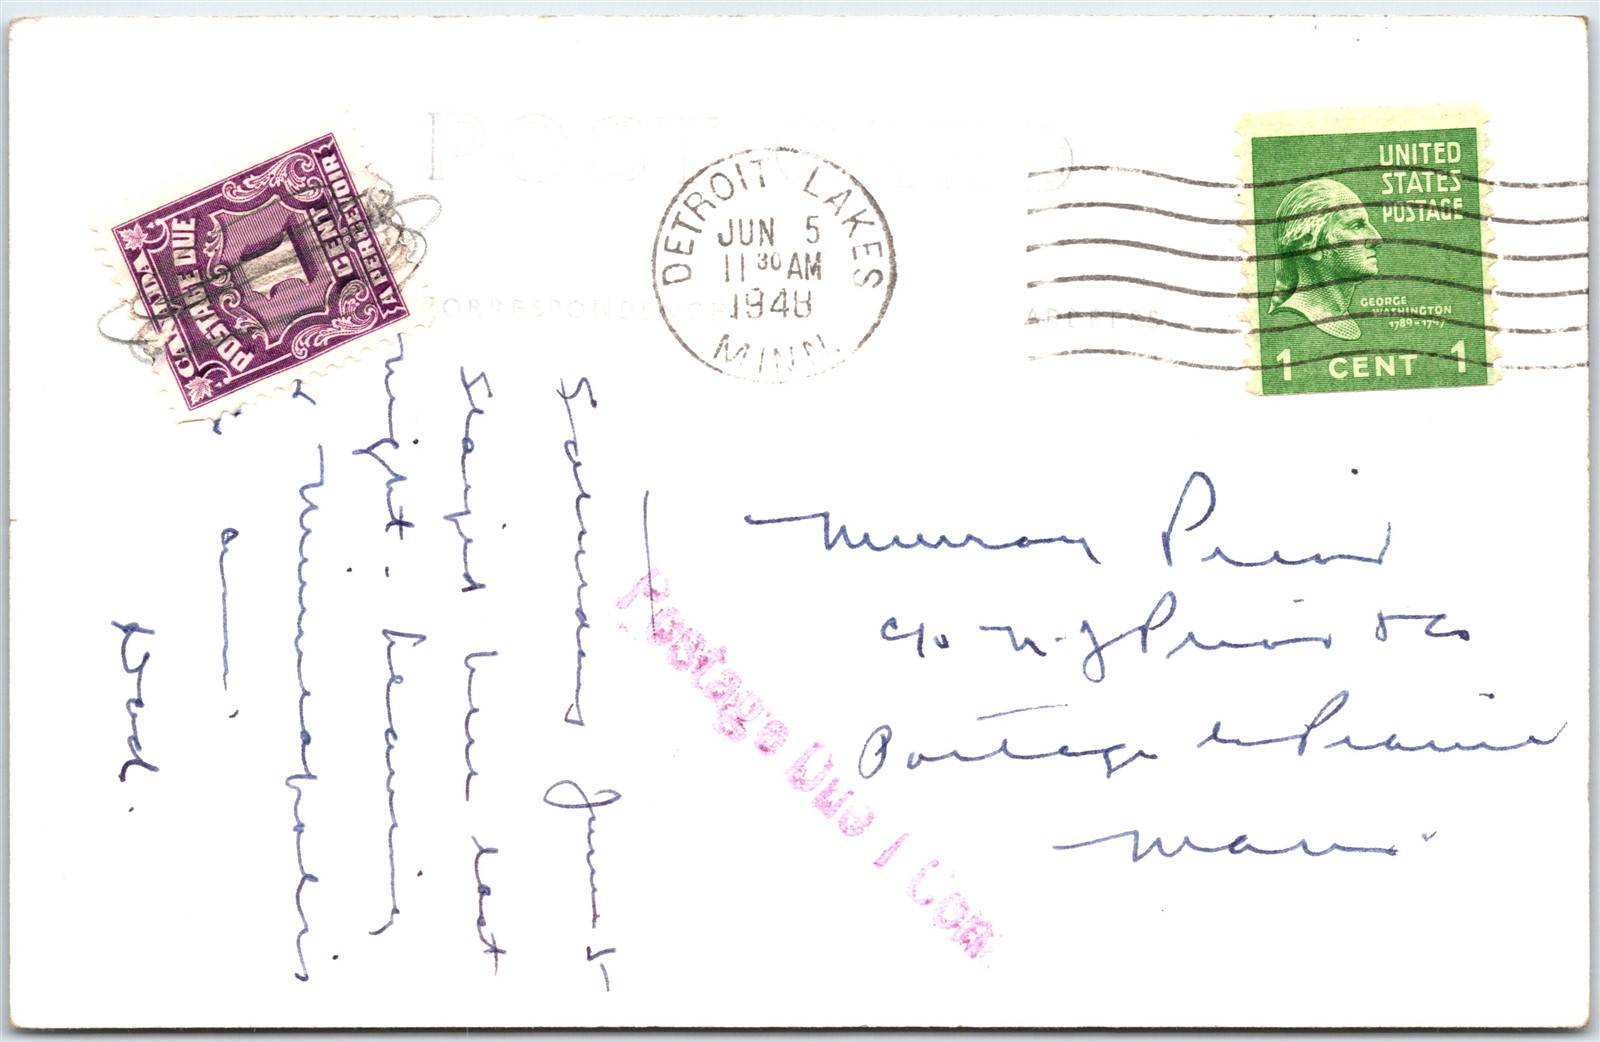 POST CARD
CORRESPONDENCE
ADDRESS
CANADA
POSTAGE DUE
1
CENT
A PERCEVOIR
DETROIT LAKES
JUN 5
11 30 AM
1948
MINN.
UNITED
STATES
POSTAGE
GEORGE
WASHINGTON
1789-1797
1 CENT 1
Saturday June 5
Stayed here last
night. Leaving
Minneapolis
am.
Dad.
Postage Due 1 Cen
Murray Prior
c/o Prior & Co
Portage la Prairie
Man.